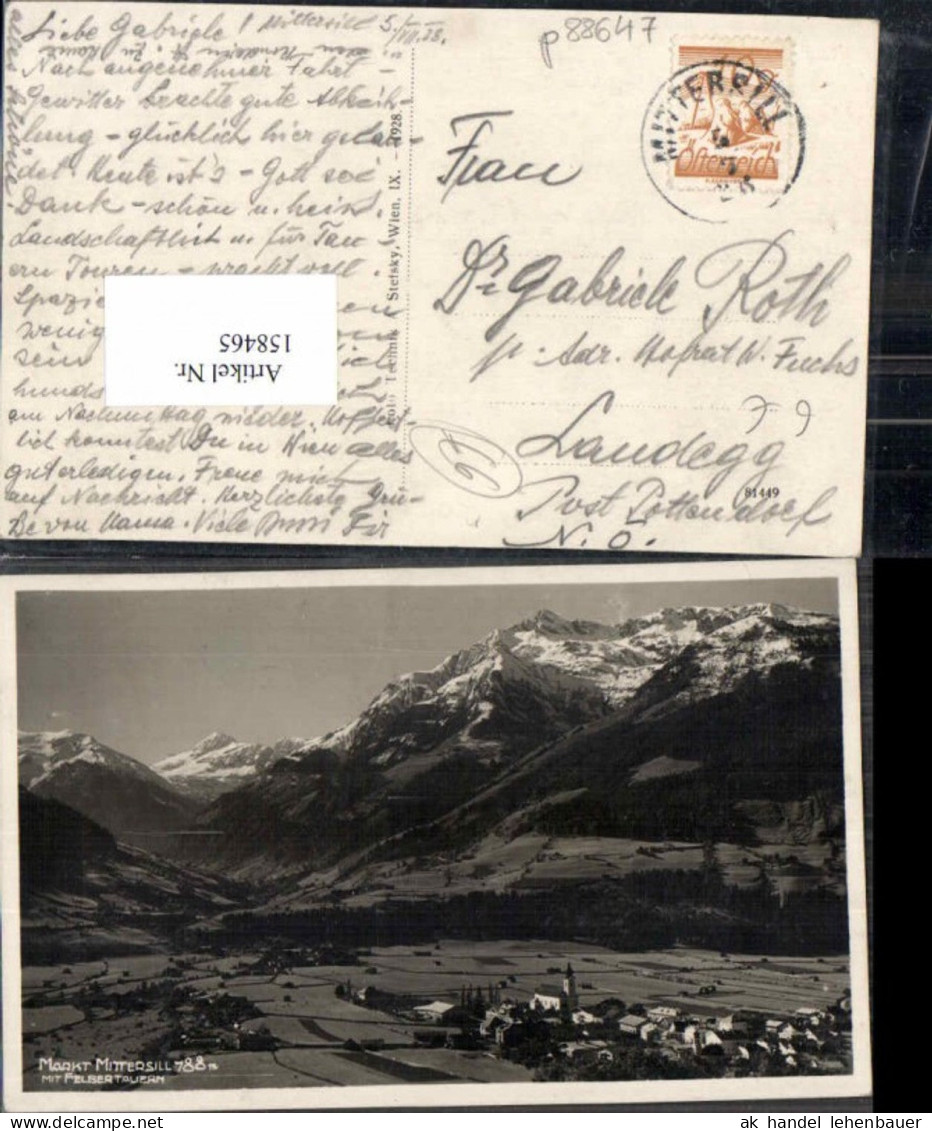 Liebe Gabriele! Mittersill 5/VII.28.
Nach angenehmer Fahrt -
Gewitter brachte gute Abküh-
lung - glücklich hier gelan-
det. Heute ist's - Gott sei
Dank - schön u. heiss.
Landschaftlich u. für Tau-
ern Touren - prachtvoll.
Spazie
wenig
sein
hunds
am Nachmittag wieder. Hoffent-
lich konntest Du in Wien alles
gut erledigen. Freue mich
auf Nachricht. Herzlichste Grü-
ße von Mama. Viele Bussi Dir
Artikel Nr.
158465
Foto Technik Stefsky, Wien, IX. - 1928.
p88647
MITTERSILL
Österreich
Frau
Dr. Gabriele Roth
p. Adr. Hofrat W. Fuchs
Landegg
Post Pottendorf
N. Ö.
79
81449
MARKT MITTERSILL 788 m
MIT FELBERTAUERN
ak handel lehenbauer